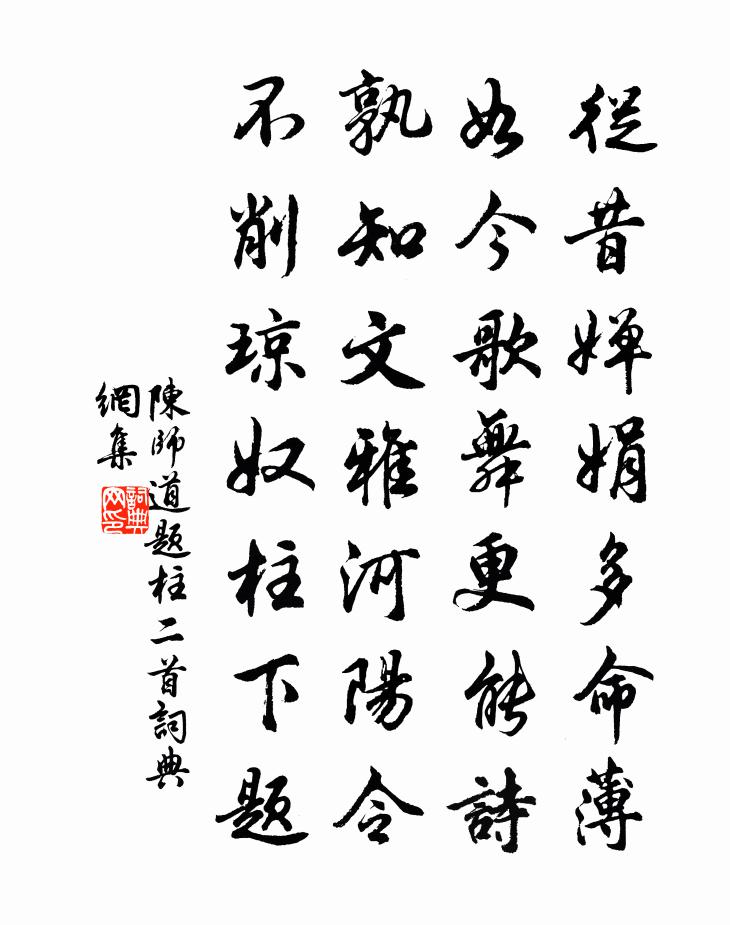 從昔嬋娟多命薄
如今歌舞更能詩
孰知文雅河陽令
不削瓊奴柱下題
陳師道題柱二首詞典
網集
詞典網印